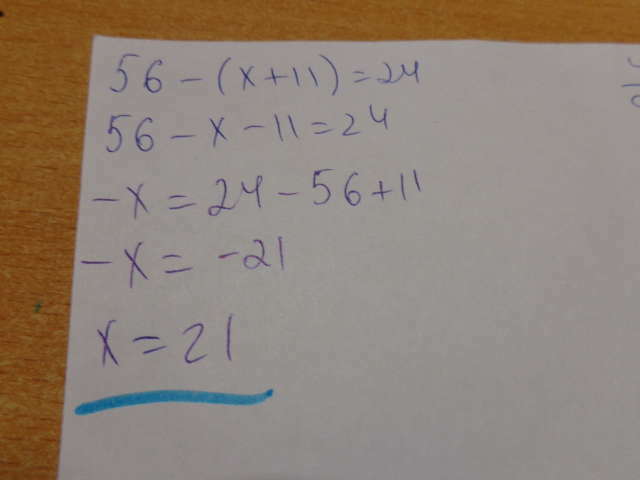 56 - (x+11) = 24
56 - x - 11 = 24
-x = 24 - 56 + 11
-x = -21
x = 21